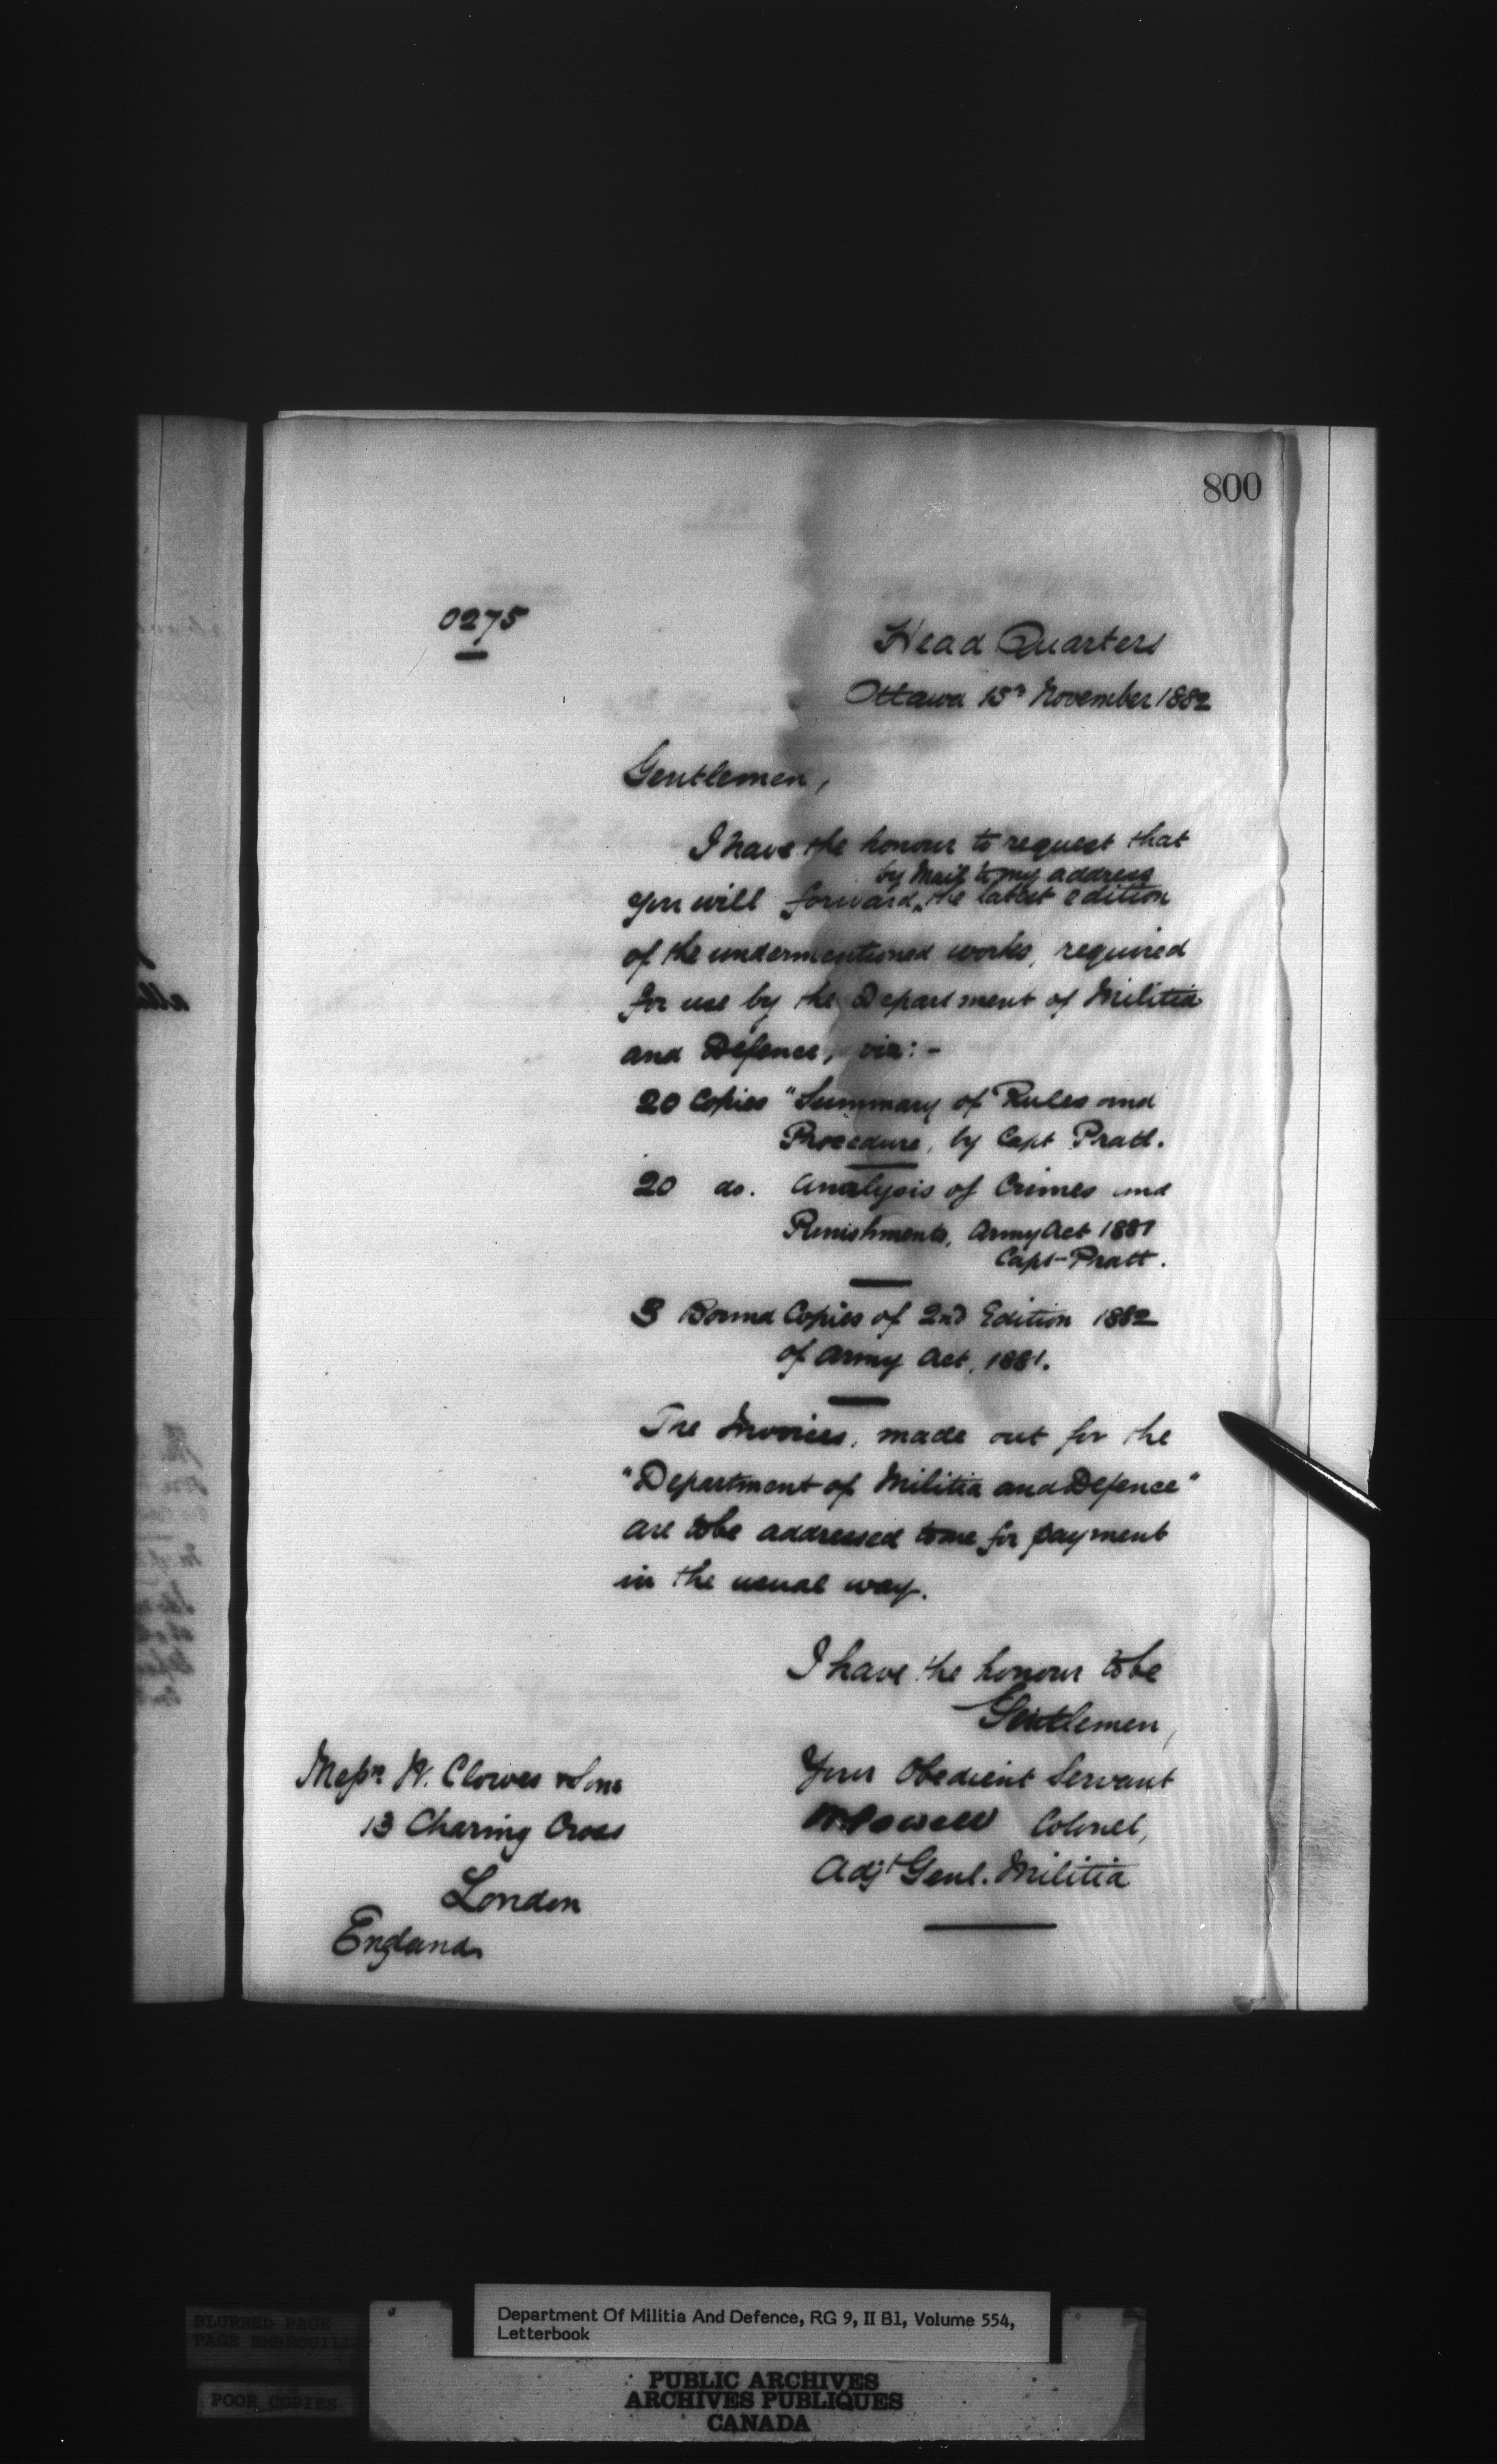 800
0275
Head Quarters
Ottawa 15th November 1882
Gentlemen,
I have the honour to request that
by Mail to my address
you will forward, the latest edition
of the undermentioned works, required
for use by the Department of Militia
and Defence, viz:-
20 Copies "Summary of Rules and
Procedure, by Capt Pratt.
20 do. Analysis of Crimes and
Punishments, Army Act 1881
Capt Pratt.
3 Bound Copies of 2nd Edition 1882
of Army Act, 1881.
The Invoices, made out for the
"Department of Militia and Defence"
are to be addressed to me for payment
in the usual way.
I have the honour to be
Gentlemen,
Your Obedient Servant
W Powell Colonel,
Adjt Genl. Militia
Messrs W. Clowes & Sons
13 Charing Cross
London
England
Department Of Militia And Defence, RG 9, II B1, Volume 554,
Letterbook
BLURRED PAGE
PAGE EMBROUILL
POOR COPIES
PUBLIC ARCHIVES
ARCHIVES PUBLIQUES
CANADA